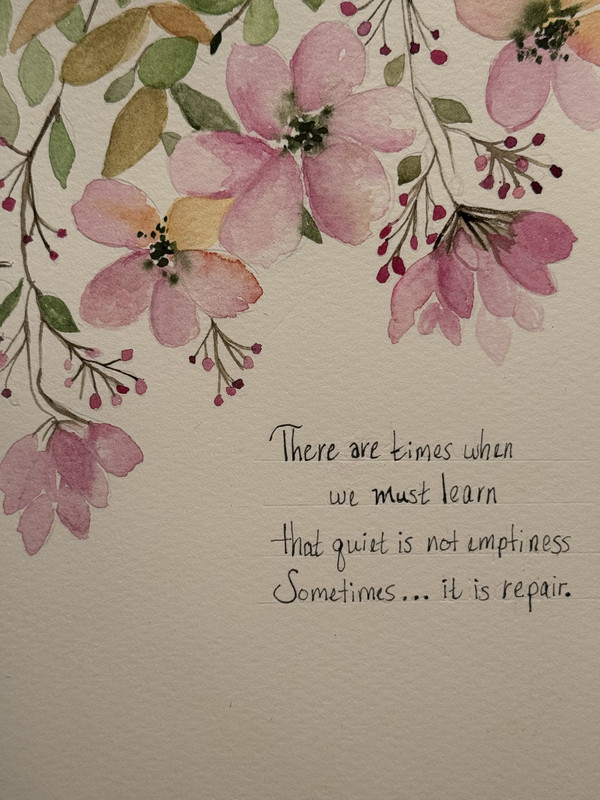 There are times when
we must learn
that quiet is not emptiness
Sometimes... it is repair.